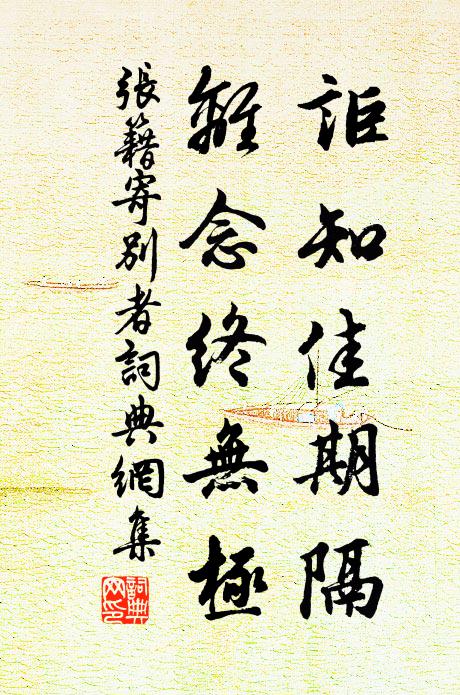 詎知佳期隔
離念終無極
張籍寄別者詞典網集
詞典
网印